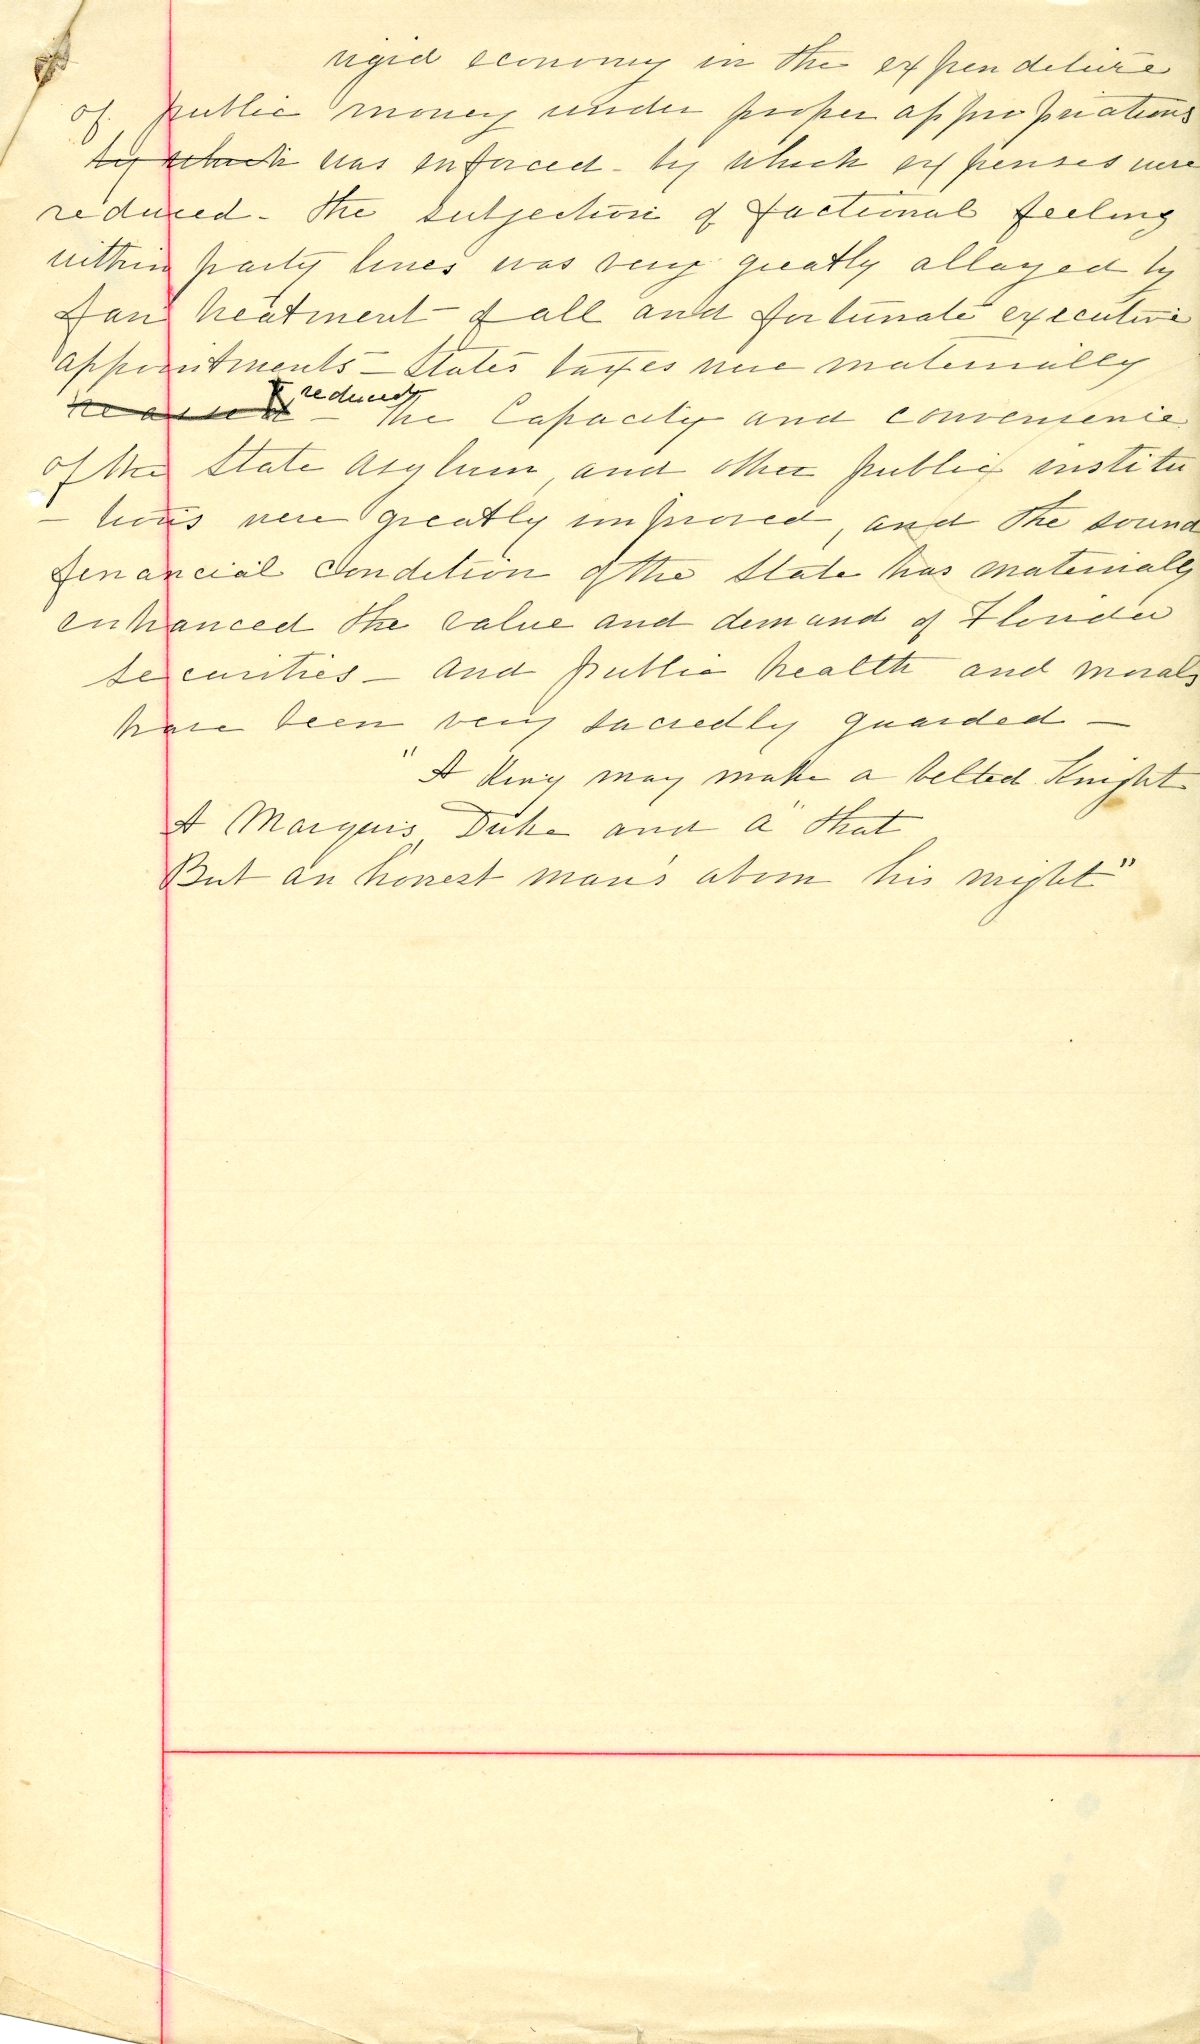 rigid economy in the expenditure
of public money under proper appropriations
by which was enforced - by which expenses were
reduced - The subjection of factional feeling
within party lines was very greatly allayed by
fair treatment of all and fortunate executive
appointments - States taxes were materially
reduced
- The Capacity and convenience
of the State Asylum, and other public institu
- tions were greatly improved, and the sound
financial condition of the State has materially
enhanced the value and demand of Florida
securities - and public health and morals
have been very sacredly guarded -
"A King may make a belted Knight
A Marquis, Duke and a' that
But an honest man's aboon his might"